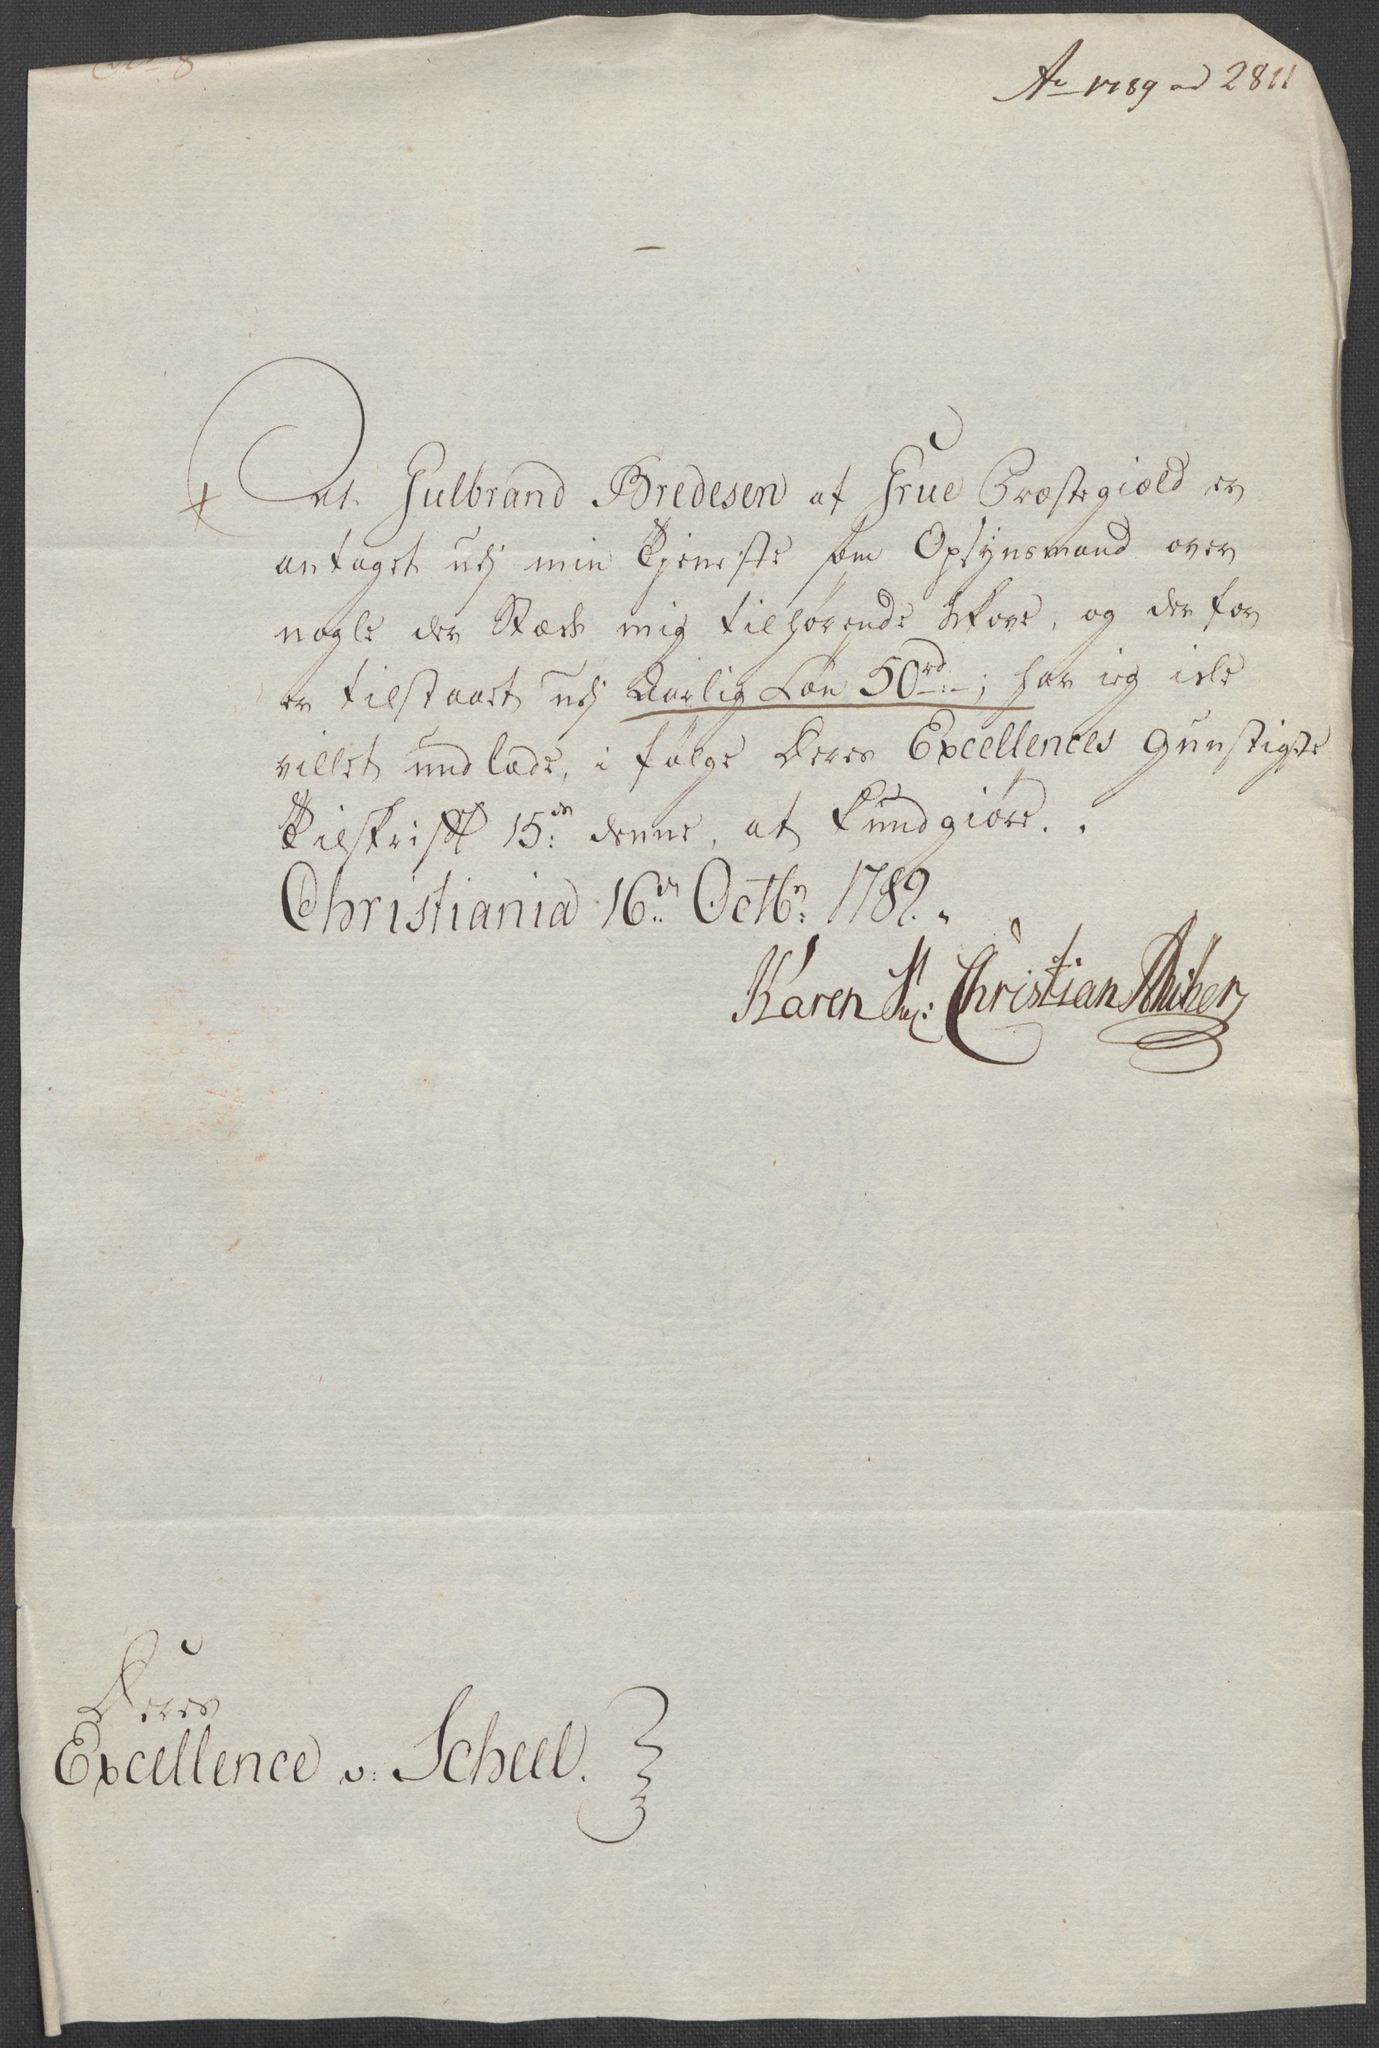 No 8
Ao 1789 ad 2811
At Gulbrand Bredesen af Grue Præstegiæld er
antaget udj min Tjeneste som Opsynsmand over
nogle der Stæds mig tilhørende Skove, og derfor
er tilstaaet udj Aarlig Løn 50rd:-; har ieg icke
villet undlade, i følge Deres Excellences gunstigste
Tilskrift 15de denne, at kundgiøre..
Christiania 16de Octbr: 1789.
Karen Sl: Christian Ancher
Deres
Excellence v: Scheel.